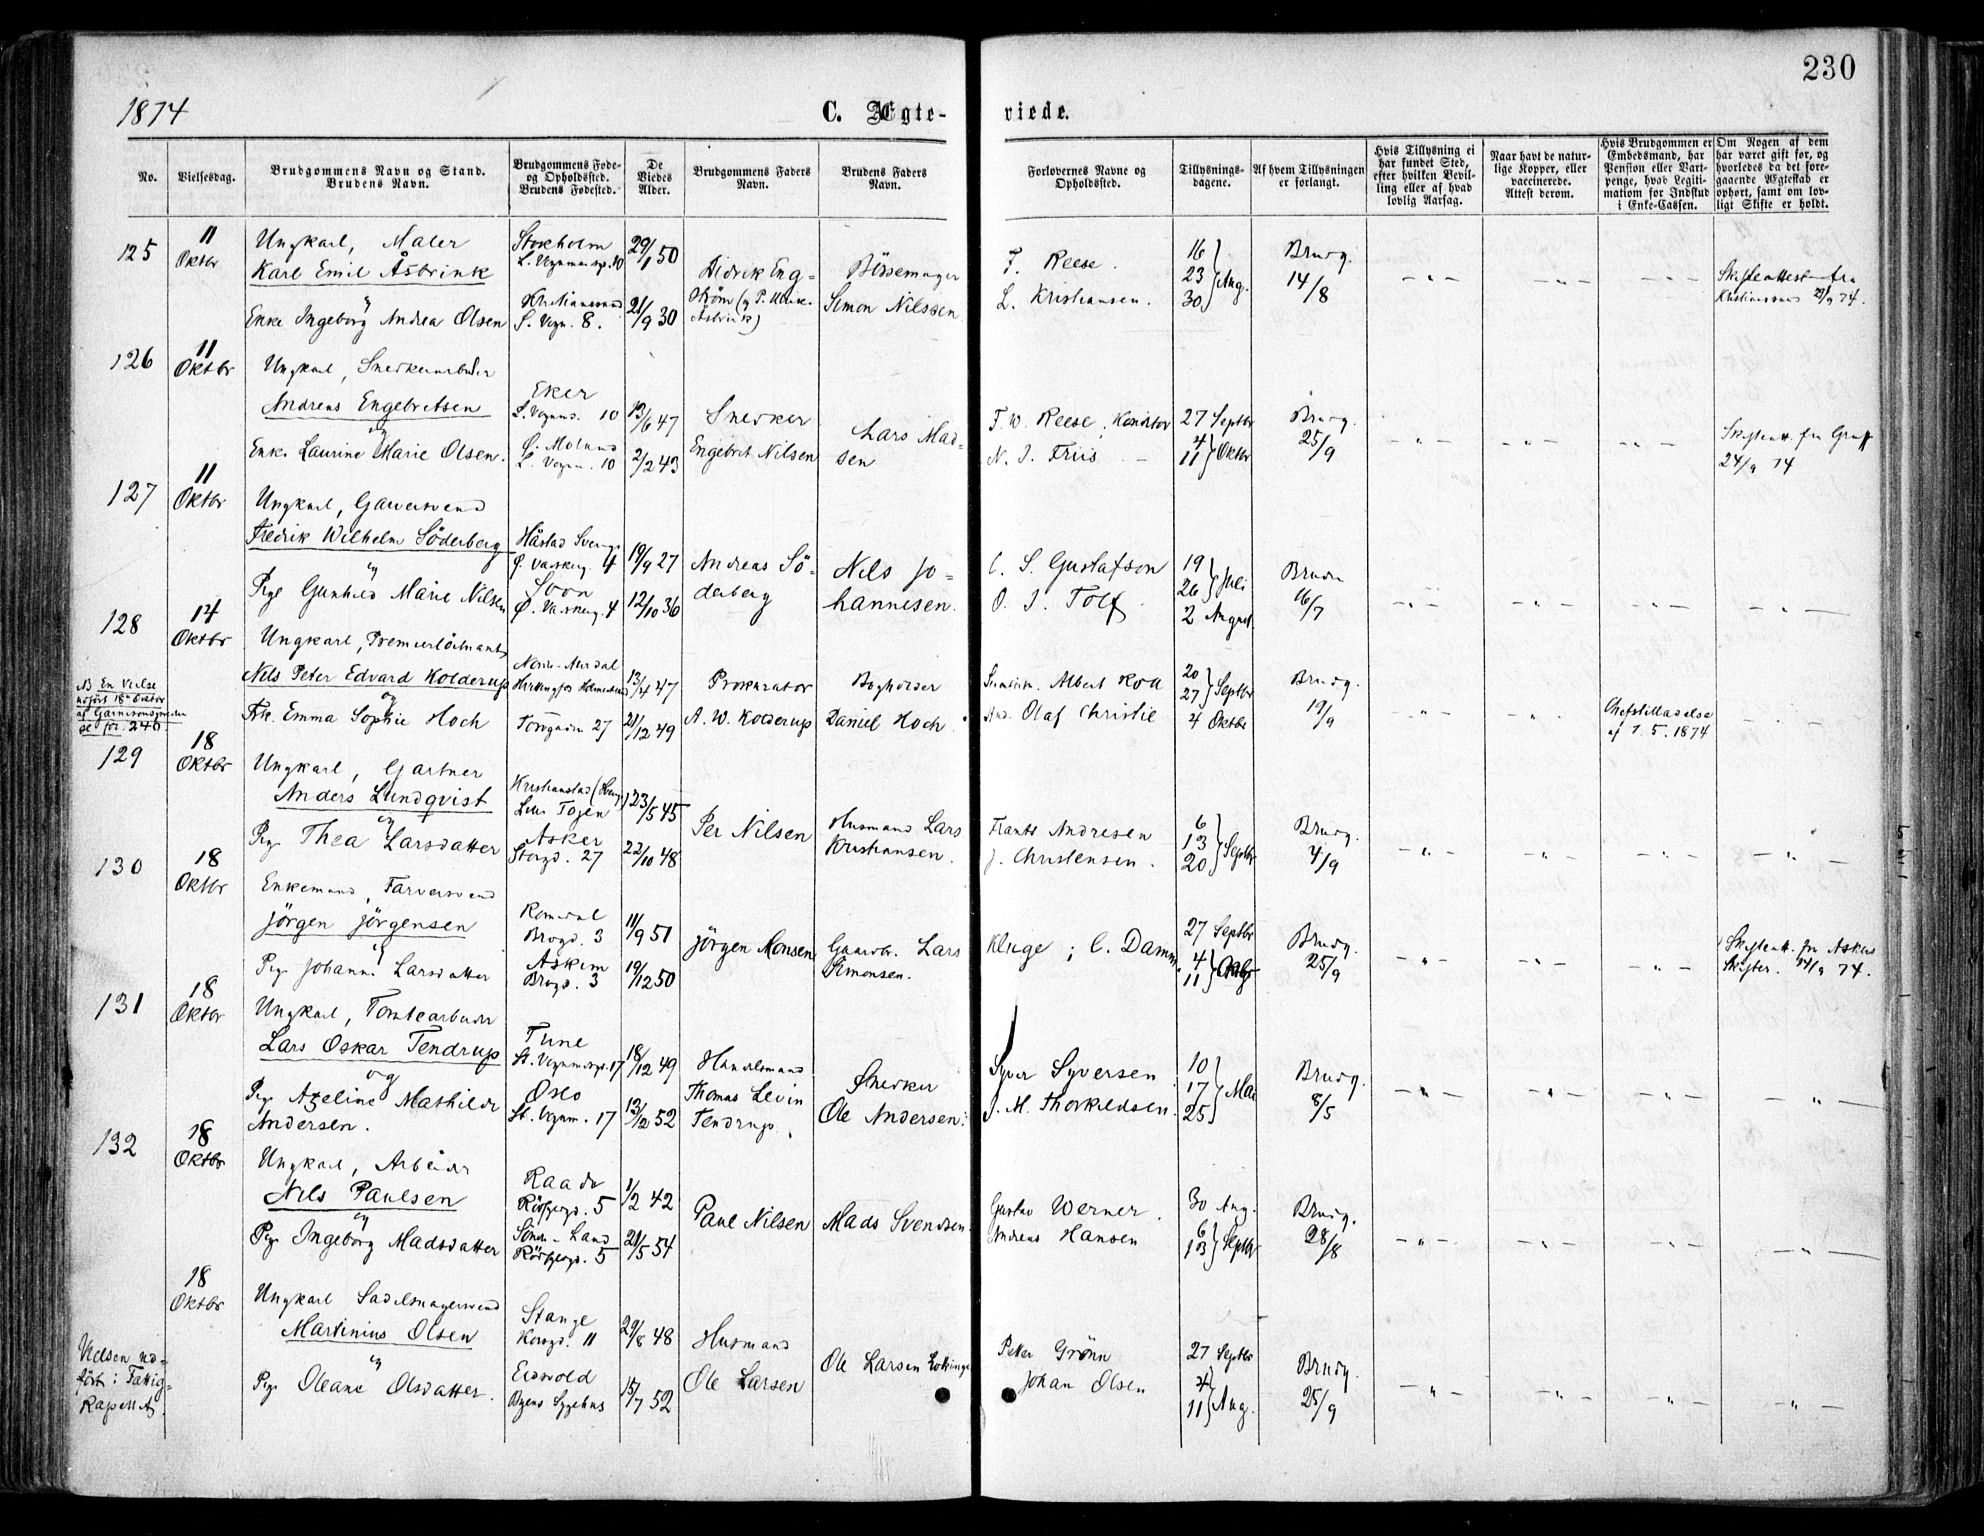 230
1874
C. Ægte-
viede.
No.
Vielsesdag.
Brudgommens Navn og Stand.
Brudens Navn.
Brudgommens Føde-
og Opholdssted.
Brudens Fødested.
De
Viedes
Alder.
Brudgommens Faders
Navn.
Brudens Faders
Navn.
Forlovernes Navne og
Opholdssted.
Tillysnings-
dagene.
Af hvem Tillysningen
er forlangt.
Hvis Tillysning ei
har fundet Sted,
efter hvilken Bevil-
ling eller af hvad
lovlig Aarsag.
Naar havt de natur-
lige Kopper, eller
vaccinerede.
Attest derom.
Hvis Brudgommen er
Embedsmand, har
Pension eller Vart-
penge, hvad Legiti-
mation for Indskud
i Enke-Cassen.
Om Nogen af dem
har været gift før, og
hvorledes da det fore-
gaaende Ægteskab er
ophørt, samt om lov-
ligt Skifte er holdt.
125
11
Oktbr
Ungkarl, Maler
Karl Emil Åsbrink
og
Enke Ingeborg Andrea Olsen
Stockholm
29/1 50
Kristianssund
8.
21/9 30
Didrik Eng-
ström
Åsbrink)
Bössemager
Simon Nilssen
F. Reese.
L. Kristiansen.
16
23
30 } Aug.
Brudg.
14/8
Skifteattest fra
Kristianssund 74.
126
11
Oktbr
Ungkarl, Snedkerarbeider
Andreas Engebretsen
og
Enke Laurine Marie Olsen.
Eker
10
13/6 47
10
2/2 43
Snedker
Engebret Nilsen
Lars Mad-
sen
F. W. Reese, Konditor
N. J. Friis
27 Septbr
4
11 } Oktbr
Brudg.
25/9
Skifteatt. fra
24/9 74
127
11
Oktbr
Ungkarl, Garversvend
Fredrik Wilhelm Söderberg
og
Pige Gunhild Marie Nilsen
Håstad Sverige
4
19/9 27
Soon
4
12/10 36
Andreas Sö-
derberg
Nils Jo-
hannesen.
C. S. Gustafson
O. J. Tolf
19
26 } Juli
2 August.
Bruden
16/7
128
14
Oktbr
Ungkarl, Premierlöitnant
Nels Peter Edvard Kolderup
og
Frk. Emma Sophie Hoch
Nord-Aurdal
13/4 47
Torvgaden 27
21/12 49
Prokurator
A. W. Kolderup
Bogholder
Daniel Hoch
Albert Koll
Olaf Christie
20
27 } Septbr
4 Oktbr
Brudg.
19/9
Cheftilladelse
af 7. 5. 1874
NB En Vielse
udført 18de Oktbr
af Garnisonspræsten
se fol. 246.
129
18
Oktbr
Ungkarl, Gartner
Anders Lundqvist
og
Pige Thea Larsdatter
Kristianstad
Lille Töjen
23/5 45
Asker
Storgd. 27
22/10 48
Per Nilsen
Husmand Lars
Kristiansen.
Frants Andresen
J. Christensen.
6
13
20 } Septbr
Brudg.
4/9
130
18
Oktbr
Enkemand, Farversvend
Jörgen Jörgensen
og
Pige Johanne Larsdatter
Romedal
Brogd. 3
11/9 51
Askim
Brogd. 3
19/12 50
Jörgen Monsen
Gaardbr. Lars
Simonsen.
Kluge; C. Damm.
27 Septbr
4
11 } Oktbr
Brudg.
25/9
Skifteatt. fra Askers
Skifter. 74.
131
18
Oktbr
Ungkarl, Tomtearbeider
Lars Oskar Tendrup
og
Pige Azeline Mathilde
Andersen.
Tune
17
18/12 49
Oslo
17
13/2 52
Handelsmand
Thomas Levin
Tendrup.
Snedker
Ole Andersen.
Syver Syversen
J. M. Thorkildsen.
10
17
25 } Mai
Brudg.
8/5
132
18
Oktbr
Ungkarl, Arbeider
Nils Paulsen
og
Pige Ingeborg Madsdatter
Raade
5
1/2 42
Söndr-Land
5
21/5 54
Paul Nilsen
Mads Svendsen.
Gustav Werner.
Andreas Hansen
30 Aug.
6
13 } Septbr
Brudg.
28/8
18
Oktbr
Ungkarl Sadelmagersvend
Martinius Olsen
og
Pige Oleane Olsdatter.
Stange
Korsgd. 11
29/8 48
Eidsvold
Byens Sygehus
15/7 52
Husmand
Ole Larsen
Ole Larsen
Peter Grönn
Johan Olsen
27 Septbr
4
11 } Aug.
Brudg.
25/9
Vielsen ud-
fört i Fattig-
kapellet.